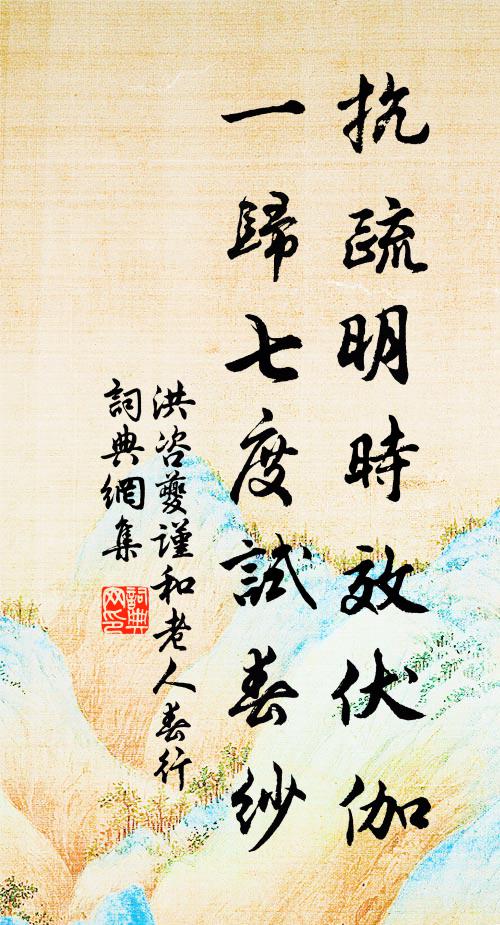 抗疏明時效伏伽
一歸七度試春紗
洪咨夔謹和老人春行
詞典網集
詞典網印